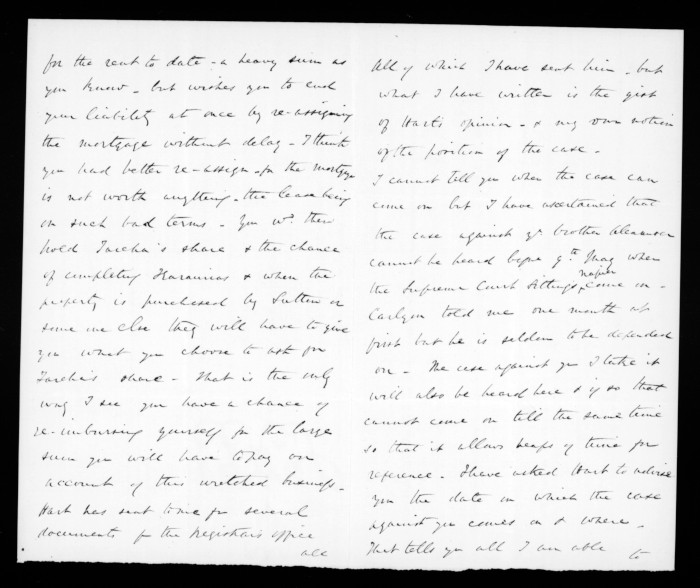 for the rent to date - a heavy sum as
you know - but wishes you to end
your liability at once by re-assigning
the mortgage without delay - I think
you had better re-assign - for the mortgage
is not worth anything - the lease being
on such bad terms - You wd. then
hold Tareha's share & the chance
of completing Karauria's & when the
property is purchased by Sutton or
some one else they will have to give
you what you choose to ask for
Tareha's share - That is the only
way I see you have a chance of
re-imbursing yourself for the large
sum you will have to pay on
account of this wretched business -
Hart has sent to me for several
documents fr the Registrar's office
all
All of which I have sent him - but
what I have written is the gist
of Hart's opinion - & my own notion
of the position of the case -
I cannot tell you when the case can
come on but I have ascertained that
the case against yr brother Alexander
cannot be heard before 9th. May when
the Supreme Court Sittings Napier come on -
Carlyon told me one month at
first but he is seldom to be depended
on - The case against you I take it
will also be heard here & if so that
cannot come on till the same time
so that it allows heaps of time for
reference - I have asked Hart to advise
you the date on which the case
against you comes on & where -
That tells you all I am able
to